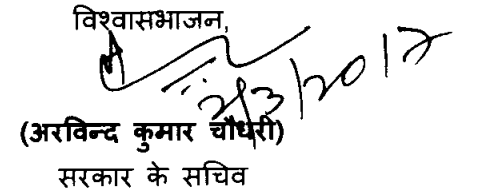 विश्वासभाजन,
2/3/2017
(अरविन्द कुमार चौधरी)
सरकार के सचिव